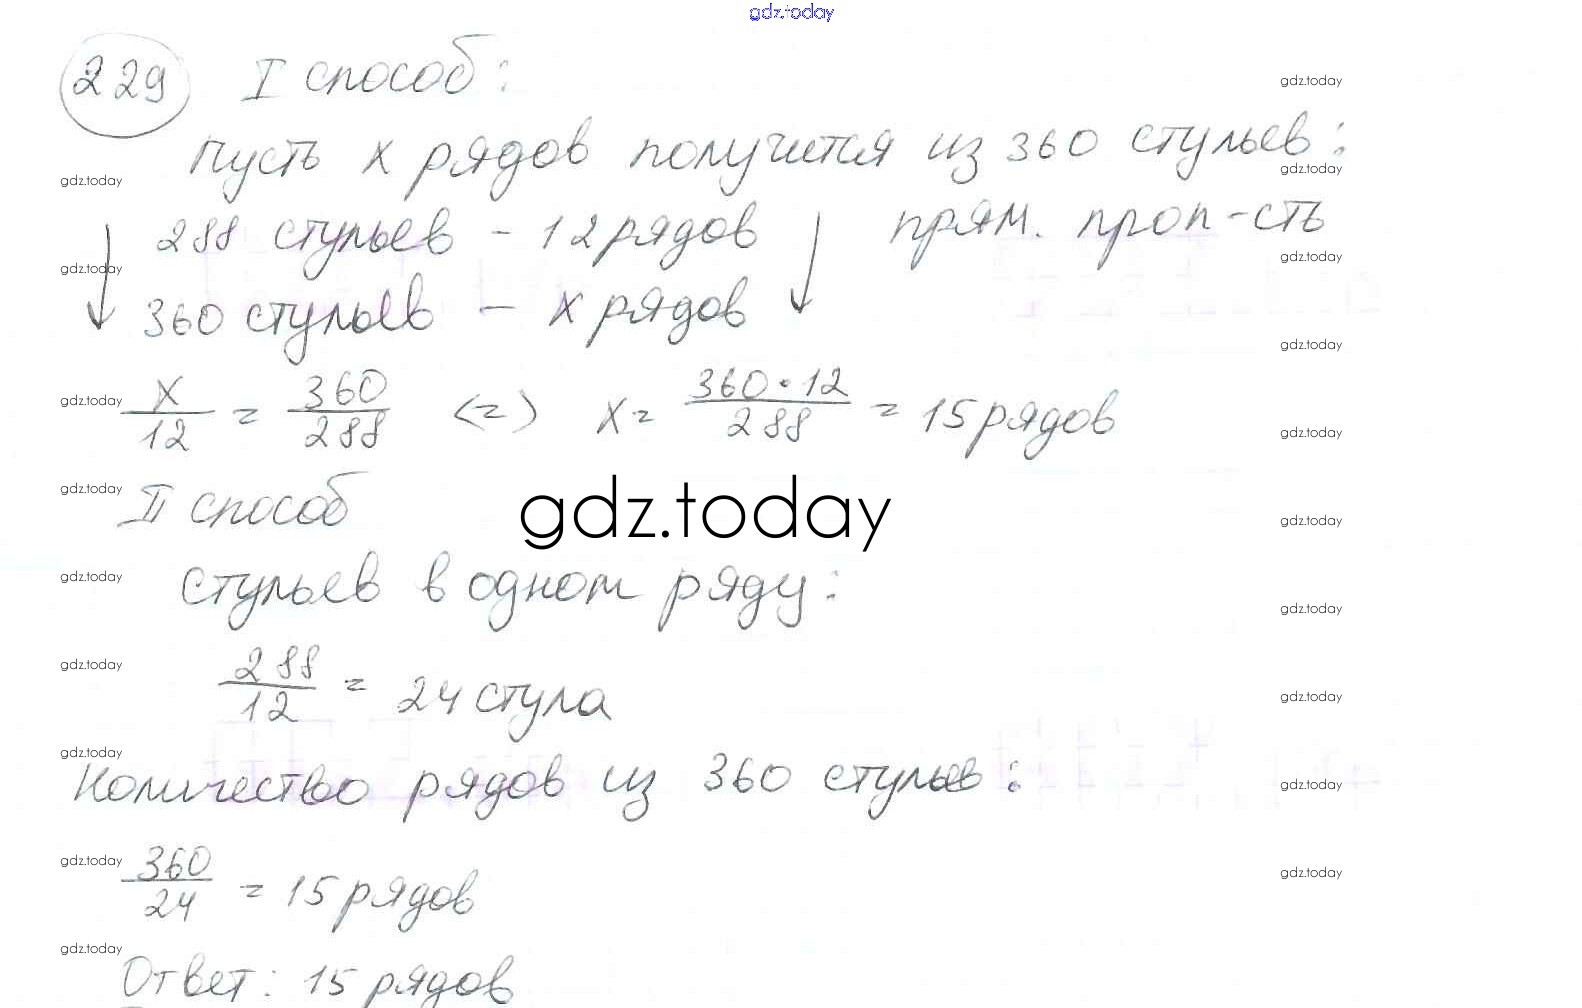 gdz.today
229 I способ:
gdz.today
Пусть x рядов получится из 360 стульев:
gdz.today
gdz.today
288 стульев - 12 рядов прям. проп-сть
gdz.today
gdz.today
360 стульев - x рядов
gdz.today
gdz.today
x/12 = 360/288 <=> x = 360·12/288 = 15 рядов
gdz.today
gdz.today
II способ
gdz.today
gdz.today
gdz.today
Стульев в одном ряду:
gdz.today
gdz.today
288/12 = 24 стула
gdz.today
gdz.today
Количество рядов из 360 стульев:
gdz.today
gdz.today
360/24 = 15 рядов
gdz.today
gdz.today
Ответ: 15 рядов